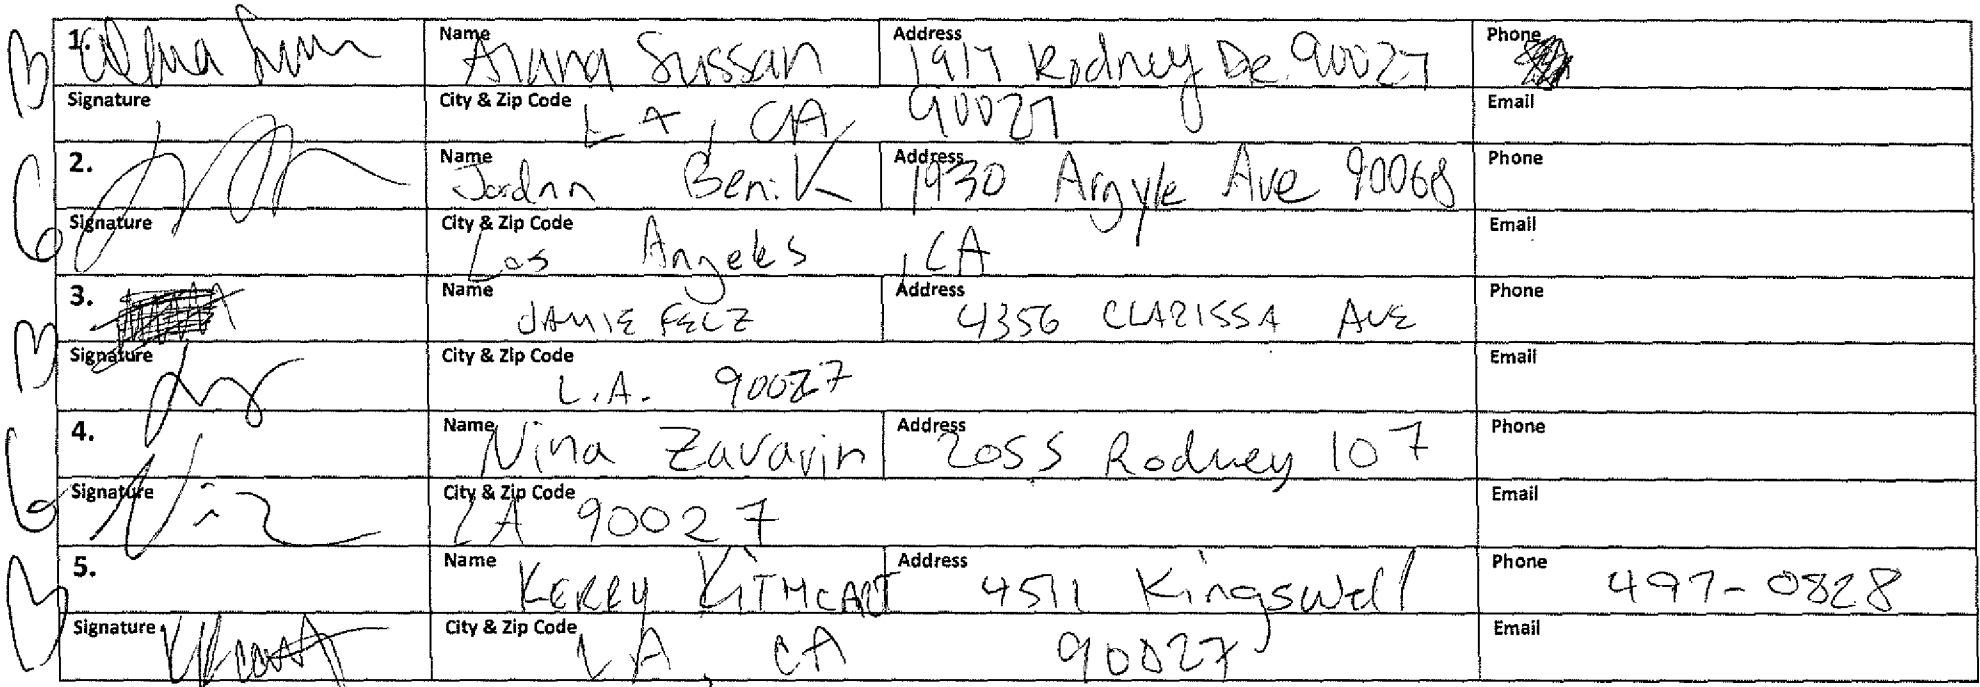 1. Name Alana Sussan Address 1917 Rodney Dr. 90027 Phone
Signature City & Zip Code LA, CA, 90027 Email
2. Name Jordan Ben.K Address 1930 Argyle Ave 90068 Phone
Signature City & Zip Code Los Angeles, CA Email
3. Name JAMIE FELZ Address 4356 CLARISSA AVE Phone
Signature City & Zip Code L.A. 90027 Email
4. Name Nina Zavarin Address 2055 Rodney 107 Phone
Signature City & Zip Code LA 90027 Email
5. Name KERRY KITHCART Address 4511 Kingswell Phone 497-0828
Signature City & Zip Code LA, CA 90027 Email